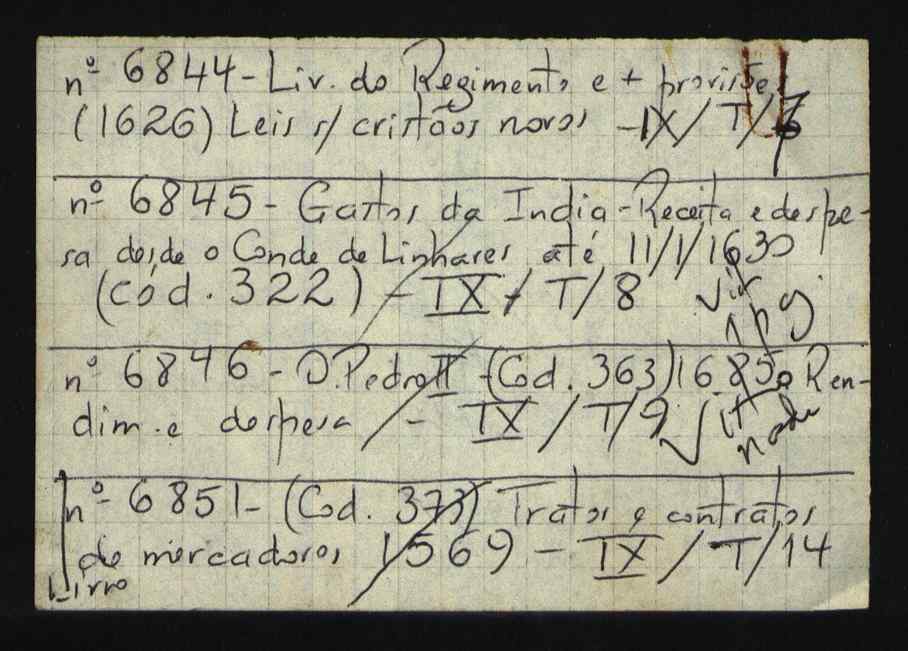 nº 6844 - Liv. do Regimento e + provisões
(1626) Leis s/ cristãos novos - IX / T / 7
nº 6845 - Gastos da India - Receita e despe-
sa desde o Conde de Linhares até 11/1/1630
(cód. 322) - IX / T / 8 Vir
1 pg
nº 6846 - D. Pedro II - (Cod. 363) 1685 Ren-
dim. e despesa / - IX / T / 9 Vi
nada
nº 6851 - (Cod. 373) Tratos e contratos
de mercadores 1569 - IX / T / 14
Livro